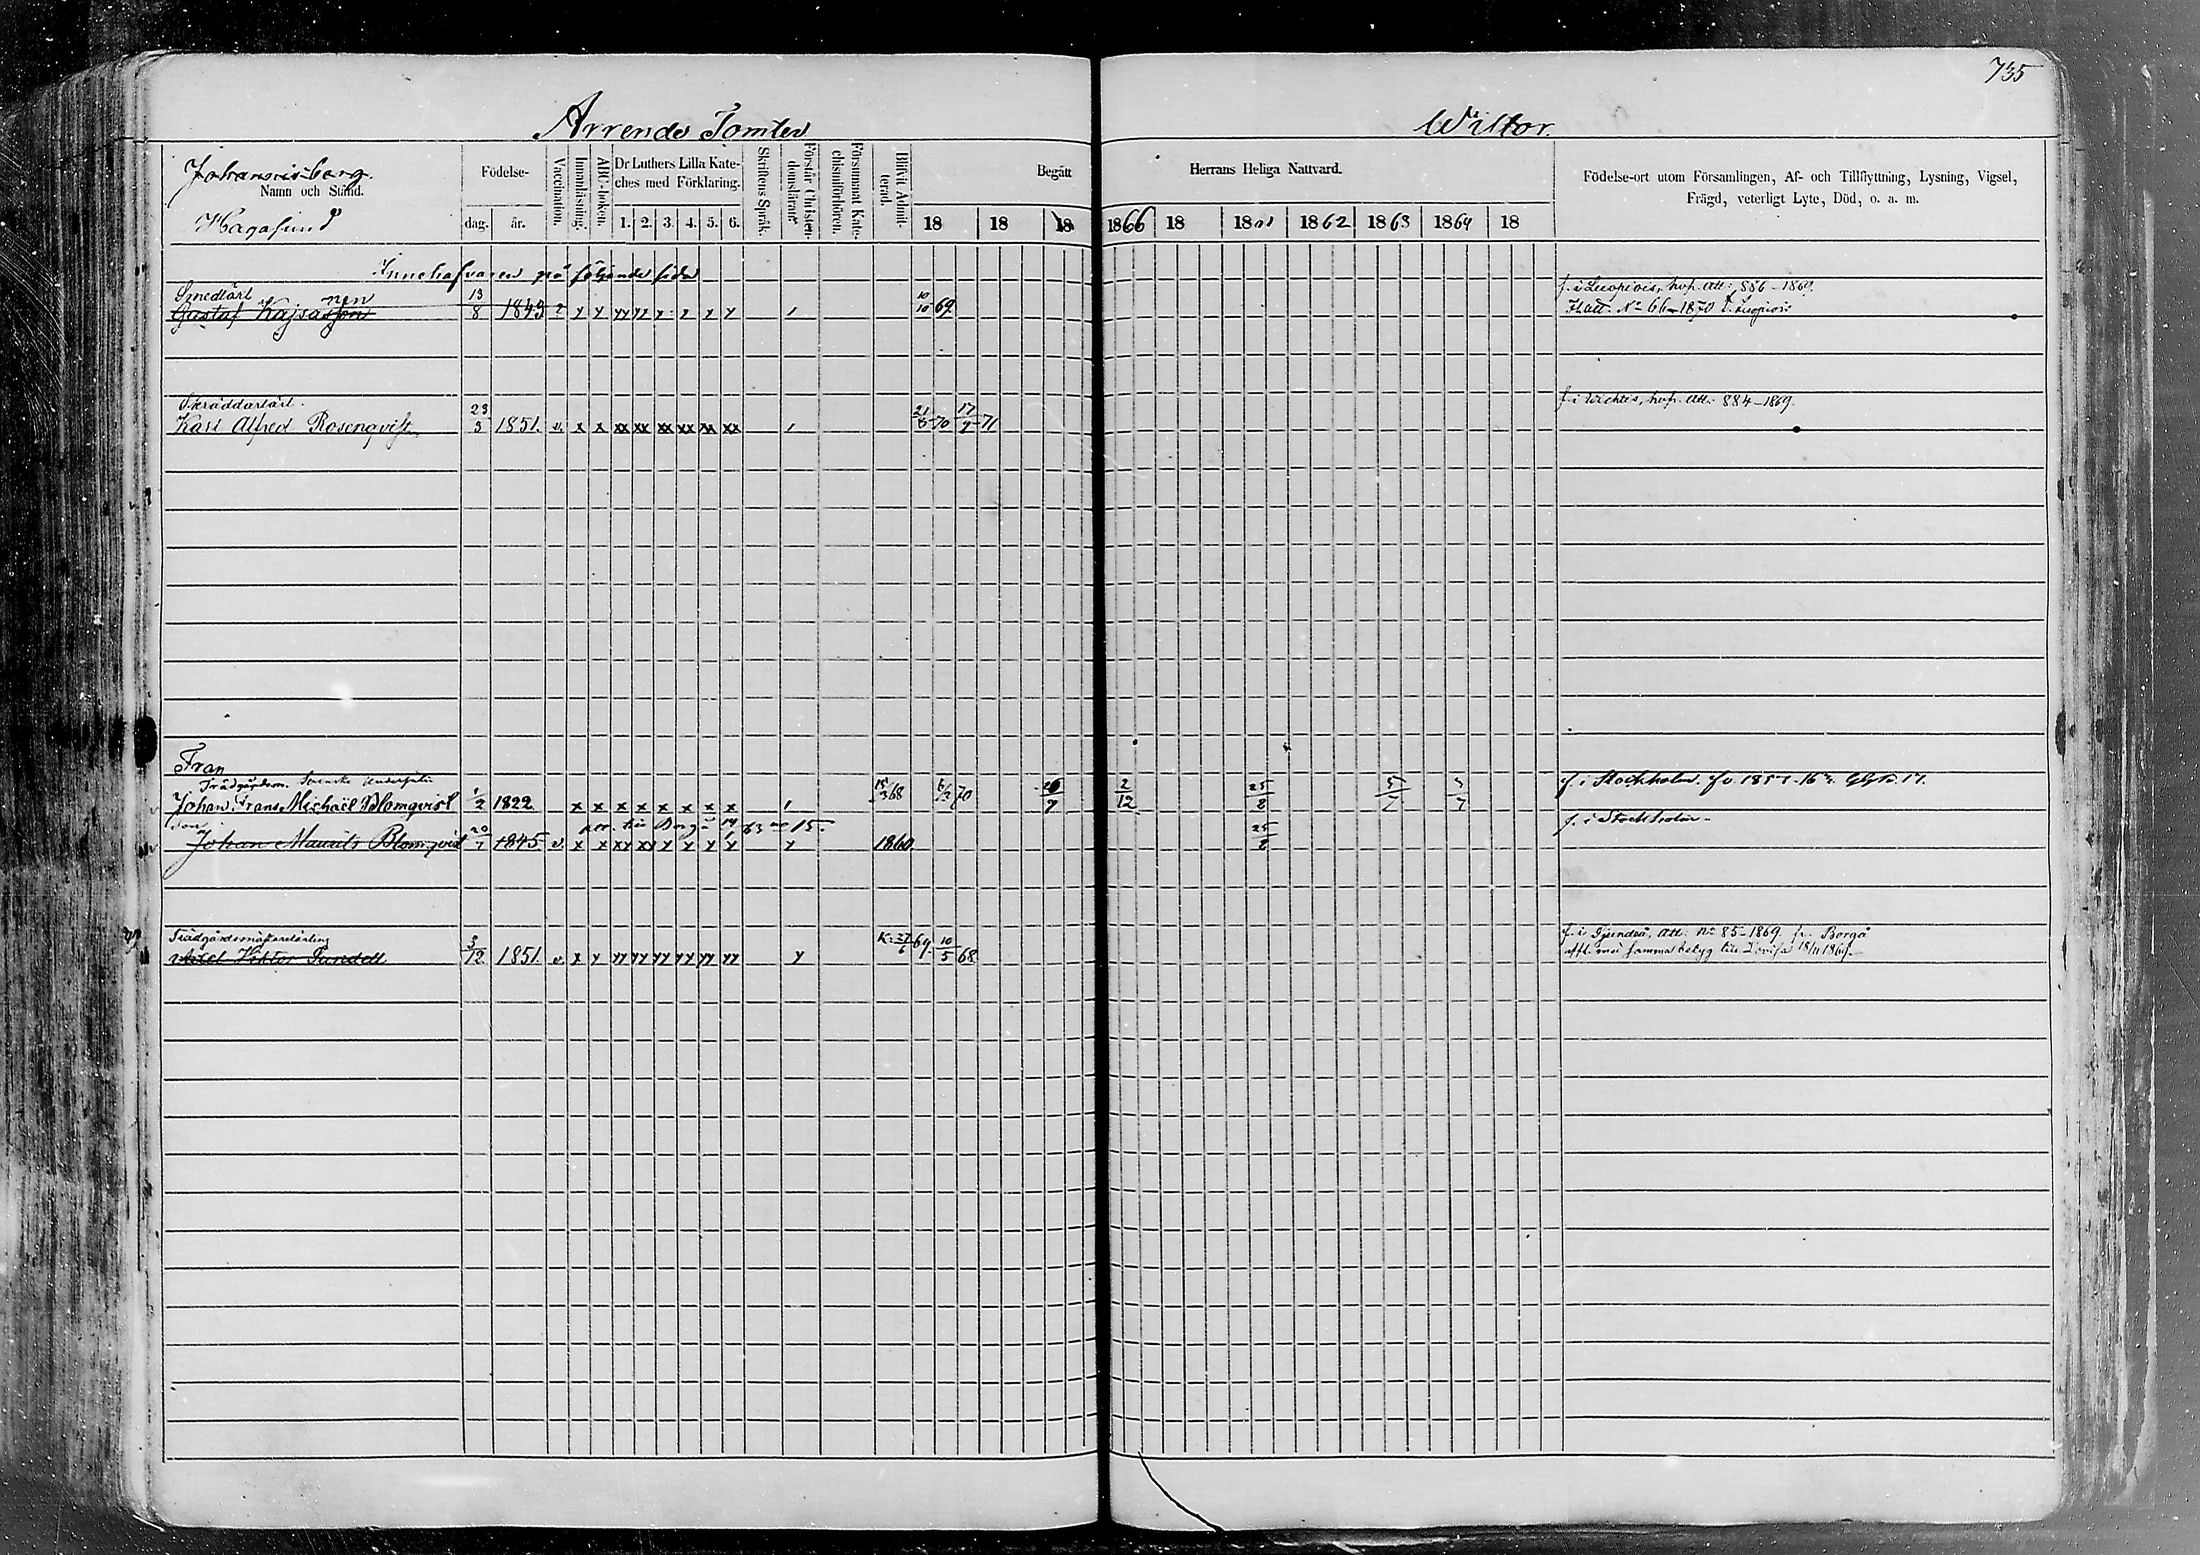 735
Arrende Tomter
Willor
Johannisberg.
Namn och Stånd.
Hagasund
Födelse-
dag. år.
Vaccination.
Innanläsning.
ABC-boken.
Dr Luthers Lilla Kate-
ches med Förklaring.
1. 2. 3. 4. 5. 6.
Skriftens Språk.
Förstår Christen-
domsläran.
Försummat Kate-
chismiförhören.
Blifvit Admit-
terad.
Begått
Herrans Heliga Nattvard.
18 18 18 1866 18 1861 1862 1863 1864 18
Födelse-ort utom Församlingen, Af- och Tillflyttning, Lysning, Vigsel,
Frägd, veterligt Lyte, Död, o. a. m.
Innehafvaren på följande sida
Smedlärl
Gustaf Kajsasson nen 13/8 1849 10/10 69
f. i Luopiois, hvfr. att: 886-1869.
Fl. att. No 66-1870 t. Luopiois
Skräddarlärl.
Karl Alfred Rosenqvist 23/3 1851. v. x x xx xx xx xx xx xx 21/6 70 17/7 71
f. i Wichtis, hvfr. att: 884-1869.
Fran
Trädgårdsm. Svensk Undersåte
Johan Frans Michaël Blomqvist 1/2 1822 x x x x x x x x 15/3 68 6/3 70 26/7 2/12 25/8 5/7 5/7
f. i Stockholm.
son
Johan Maurits Blomqvist 20/7 1845 v. x x xx xx x x x x 1860. 25/8
Borgå 14/1 63 no 15.
f. i Stockholm
Trädgårdsmästarelärling
Axel Viktor Sundell 3/12 1851. v. x x 27/6 69. 10/5 68
f. i Sjundeå, att: No 85-1869 fr. Borgå
afft. med samma betyg till Lovisa 18/11 1869.